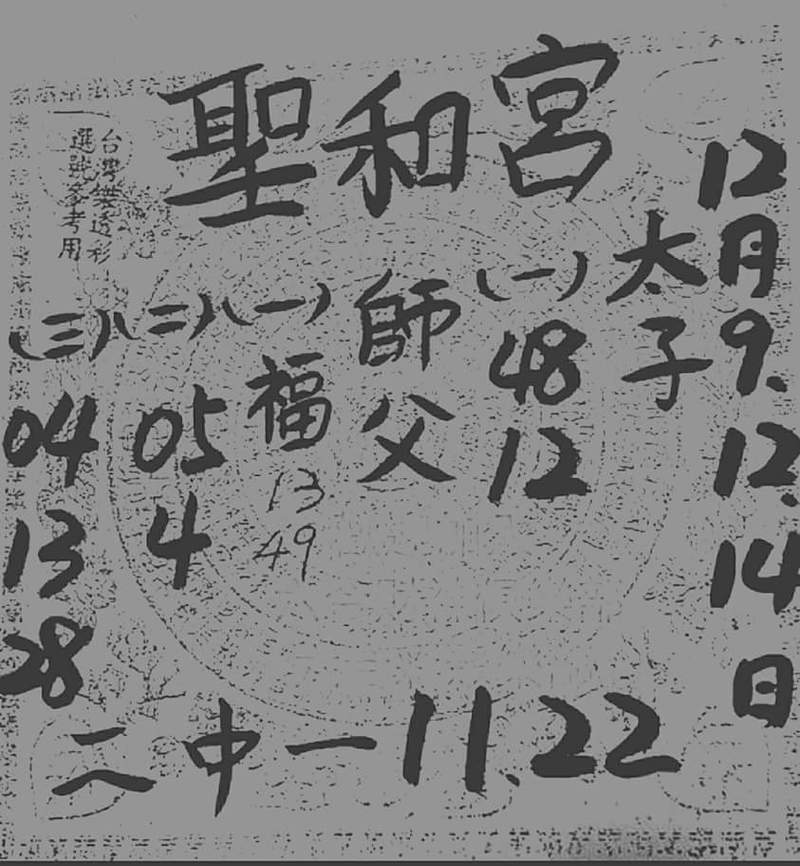 聖和宮
12月9.12.14日
太子
(一)
48
12
師父
(一)
福
13
49
(二)
05
4
(三)
04
13
28
二中一11.22
台灣樂透彩
選號參考用